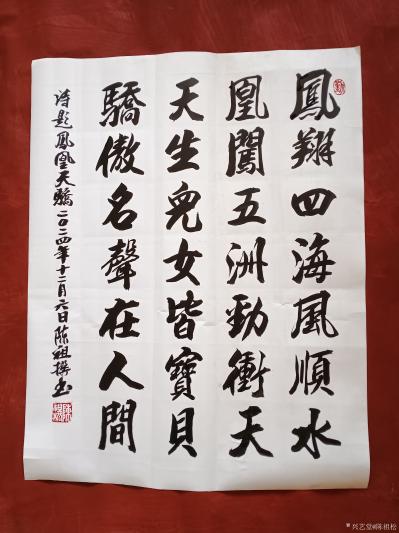 鳳翔四海風順水
凰闖五洲勁衝天
天生兒女皆寶貝
驕傲名聲在人間
诗题鳳凰天驕二〇二四年十二月六日陈祖撰书
兴艺堂@陈祖松